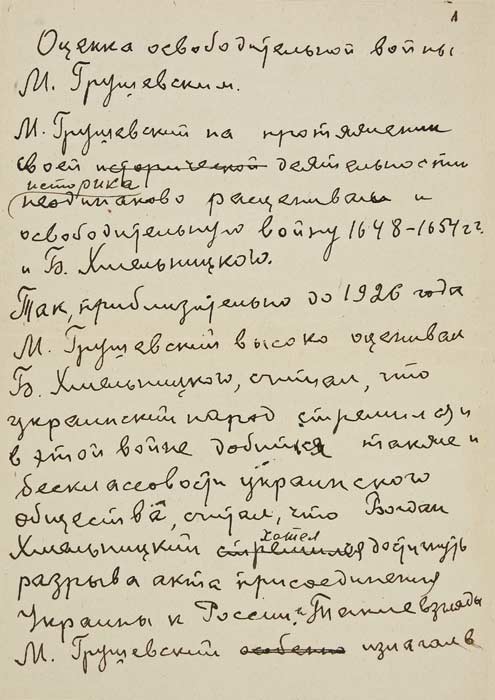 1
Оценка освободительной войны
М. Грушевским.
М. Грушевский на протяжении
своей исторической деятельности
историка
неодинаково расценивал и
освободительную войну 1648-1654 гг.
и Б. Хмельницкого.
Так, приблизительно до 1926 года
М. Грушевский высоко оценивал
Б. Хмельницкого, считал, что
украинский народ стремился и
в этой войне добиться также и
бесклассовости украинского
общества, считал, что Богдан
хотел
Хмельницкий стремился достигнуть
разрыва акта присоединения
Украины к России. Такие взгляды
М. Грушевский особенно излагал в